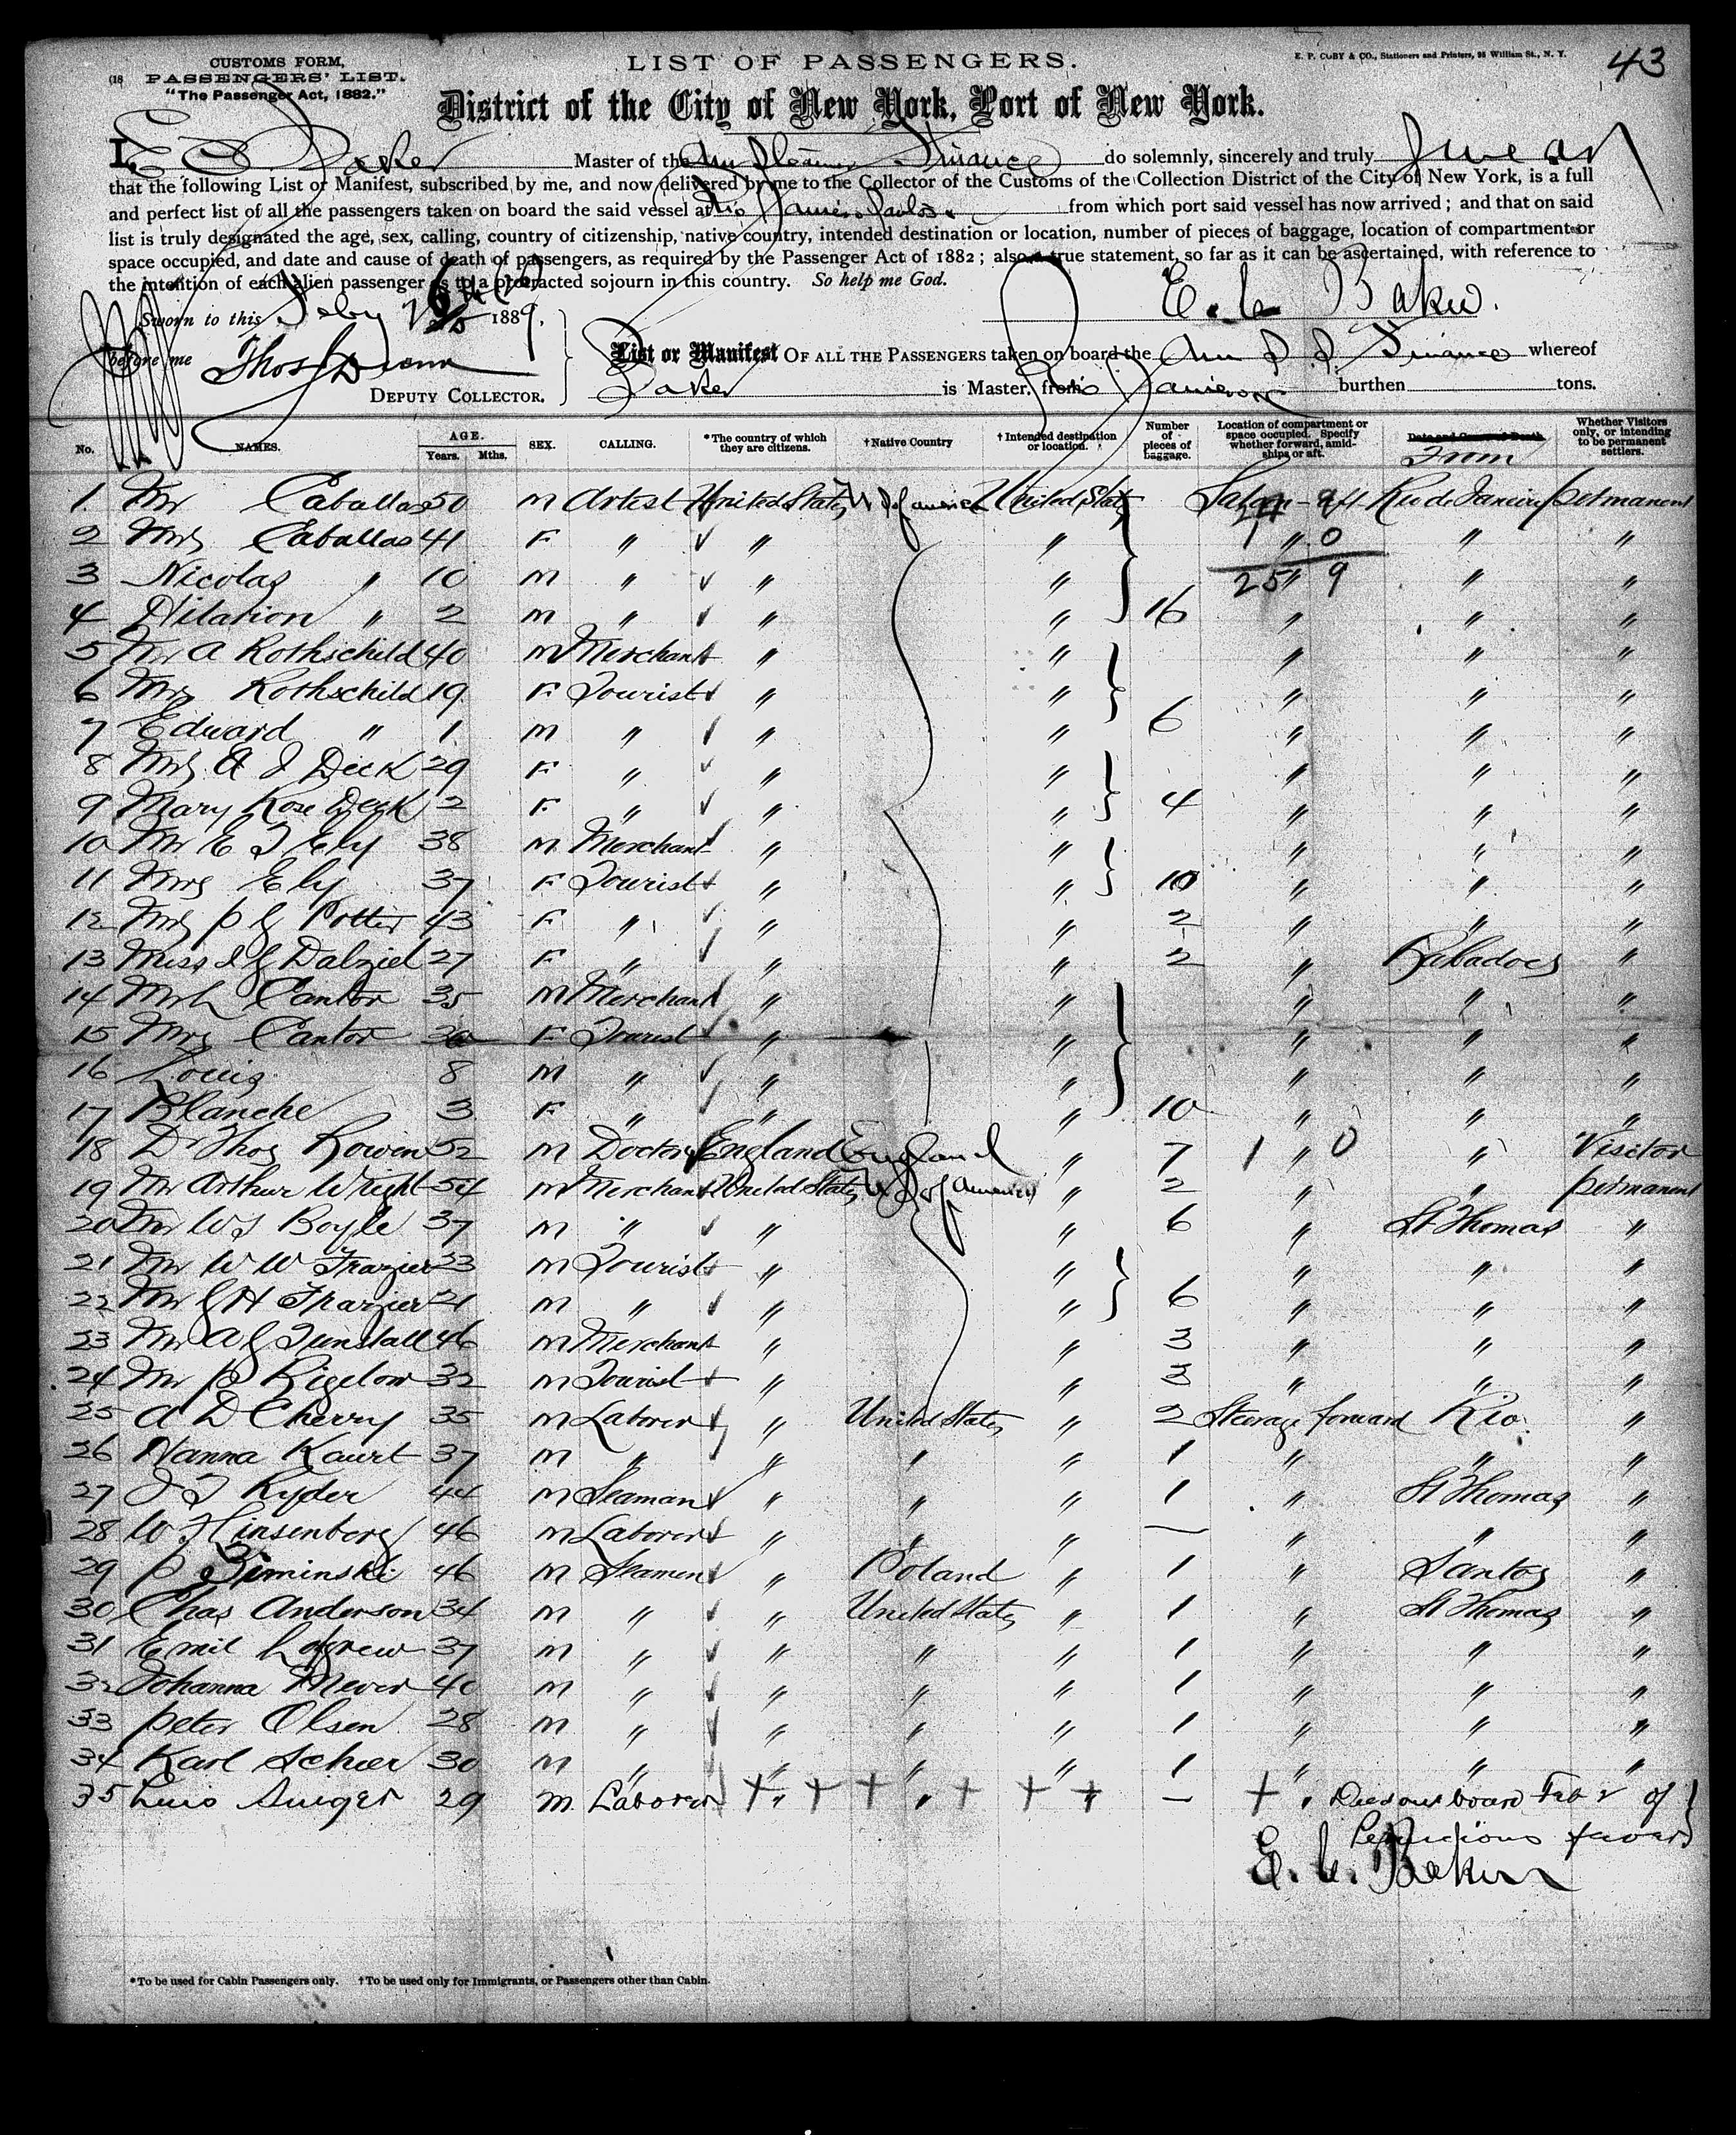 CUSTOMS FORM,
PASSENGERS' LIST.
"The Passenger Act, 1882."
LIST OF PASSENGERS.
E. P. COBY & CO., Stationers and Printers, 96 William St., N. Y.
43
District of the City of New York, Port of New York.
I, E C Baker Master of the Am Steamer Finance do solemnly, sincerely and truly swear
that the following List or Manifest, subscribed by me, and now delivered by me to the Collector of the Customs of the Collection District of the City of New York, is a full
and perfect list of all the passengers taken on board the said vessel at Rio Janeiro from which port said vessel has now arrived; and that on said
list is truly designated the age, sex, calling, country of citizenship, native country, intended destination or location, number of pieces of baggage, location of compartment or
space occupied, and date and cause of death of passengers, as required by the Passenger Act of 1882; also a true statement, so far as it can be ascertained, with reference to
the intention of each alien passenger as to a protracted sojourn in this country. So help me God.
E. C. Baker.
Sworn to this Feby 1889.
before me Thos
DEPUTY COLLECTOR.
List or Manifest OF ALL THE PASSENGERS taken on board the Am S. S. Finance whereof
Baker is Master, from Rio Janeiro burthen tons.
No. NAMES. AGE. Years. Mths. SEX. CALLING. *The country of which they are citizens. †Native Country †Intended destination or location. Number of pieces of baggage. Location of compartment or space occupied. Specify whether forward, amidships or aft. Date and Cause of Death From Whether Visitors only, or intending to be permanent settlers.
1 Mr Caballas 50 M Artist United States U S of America United States Saloon - aft Rio de Janeiro permanent
2 Mrs Caballas 41 F " " " " " "
3 Nicolas " 10 M " " " " " "
4 Hilarion " 2 M " " " 16 " " "
5 Mr A Rothschild 40 M Merchant " " " " "
6 Mrs Rothschild 19 F Tourist " " " " "
7 Edward " 1 M " " " 6 " " "
8 Mrs A J Deck 29 F " " " " " "
9 Mary Rose Deck 2 F " " " 4 " " "
10 Mr E T Ely 38 M Merchant " " " " "
11 Mrs Ely 37 F Tourist " " 10 " " "
12 Mrs P G Potter 43 F " " " 2 " " "
13 Miss I G Dalziel 27 F " " " 2 " Babadoes "
14 Mr L Cantor 35 M Merchant " " " " "
15 Mrs Cantor 30 F Tourist " " " " "
16 Louis 8 M " " " " " "
17 Blanche 3 F " " " 10 " " "
18 Dr Thos Rowen 52 M Doctor England England " 7 " " Visitor
19 Mr Arthur Wright 54 M Merchant United States U S of America " 2 " " permanent
20 Mr W S Boyle 37 M " " " 6 " St Thomas "
21 Mr W W Frazier 23 M Tourist " " " " "
22 Mr G H Frazier 21 M " " " 6 " " "
23 Mr A G Tunstall 46 M Merchant " " 3 " " "
24 Mr P Bigelow 32 M Tourist " " 3 " " "
25 A D Cherry 35 M Laborer " United States " 2 Steerage forward Rio "
26 Hanna Kaurt 37 M " " " " 1 " " "
27 J T Ryder 44 M Seaman " " " 1 " St Thomas "
28 W Hinsenberg 46 M Laborer " " " — " " "
29 P Ziminski 46 M Seaman " Poland " 1 " Santos "
30 Chas Anderson 34 M " " United States " 1 " St Thomas "
31 Emil Lofgrew 37 M " " " " 1 " " "
32 Johanna Mever 40 M " " " " 1 " " "
33 Peter Olsen 28 M " " " " 1 " " "
34 Karl Scheer 30 M " " " " 1 " " "
35 Luis Suiger 29 M. Laborer " " " — " Died on board Feb 2 of
Pernicious fever
E. C. Baker
*To be used for Cabin Passengers only. †To be used only for Immigrants, or Passengers other than Cabin.